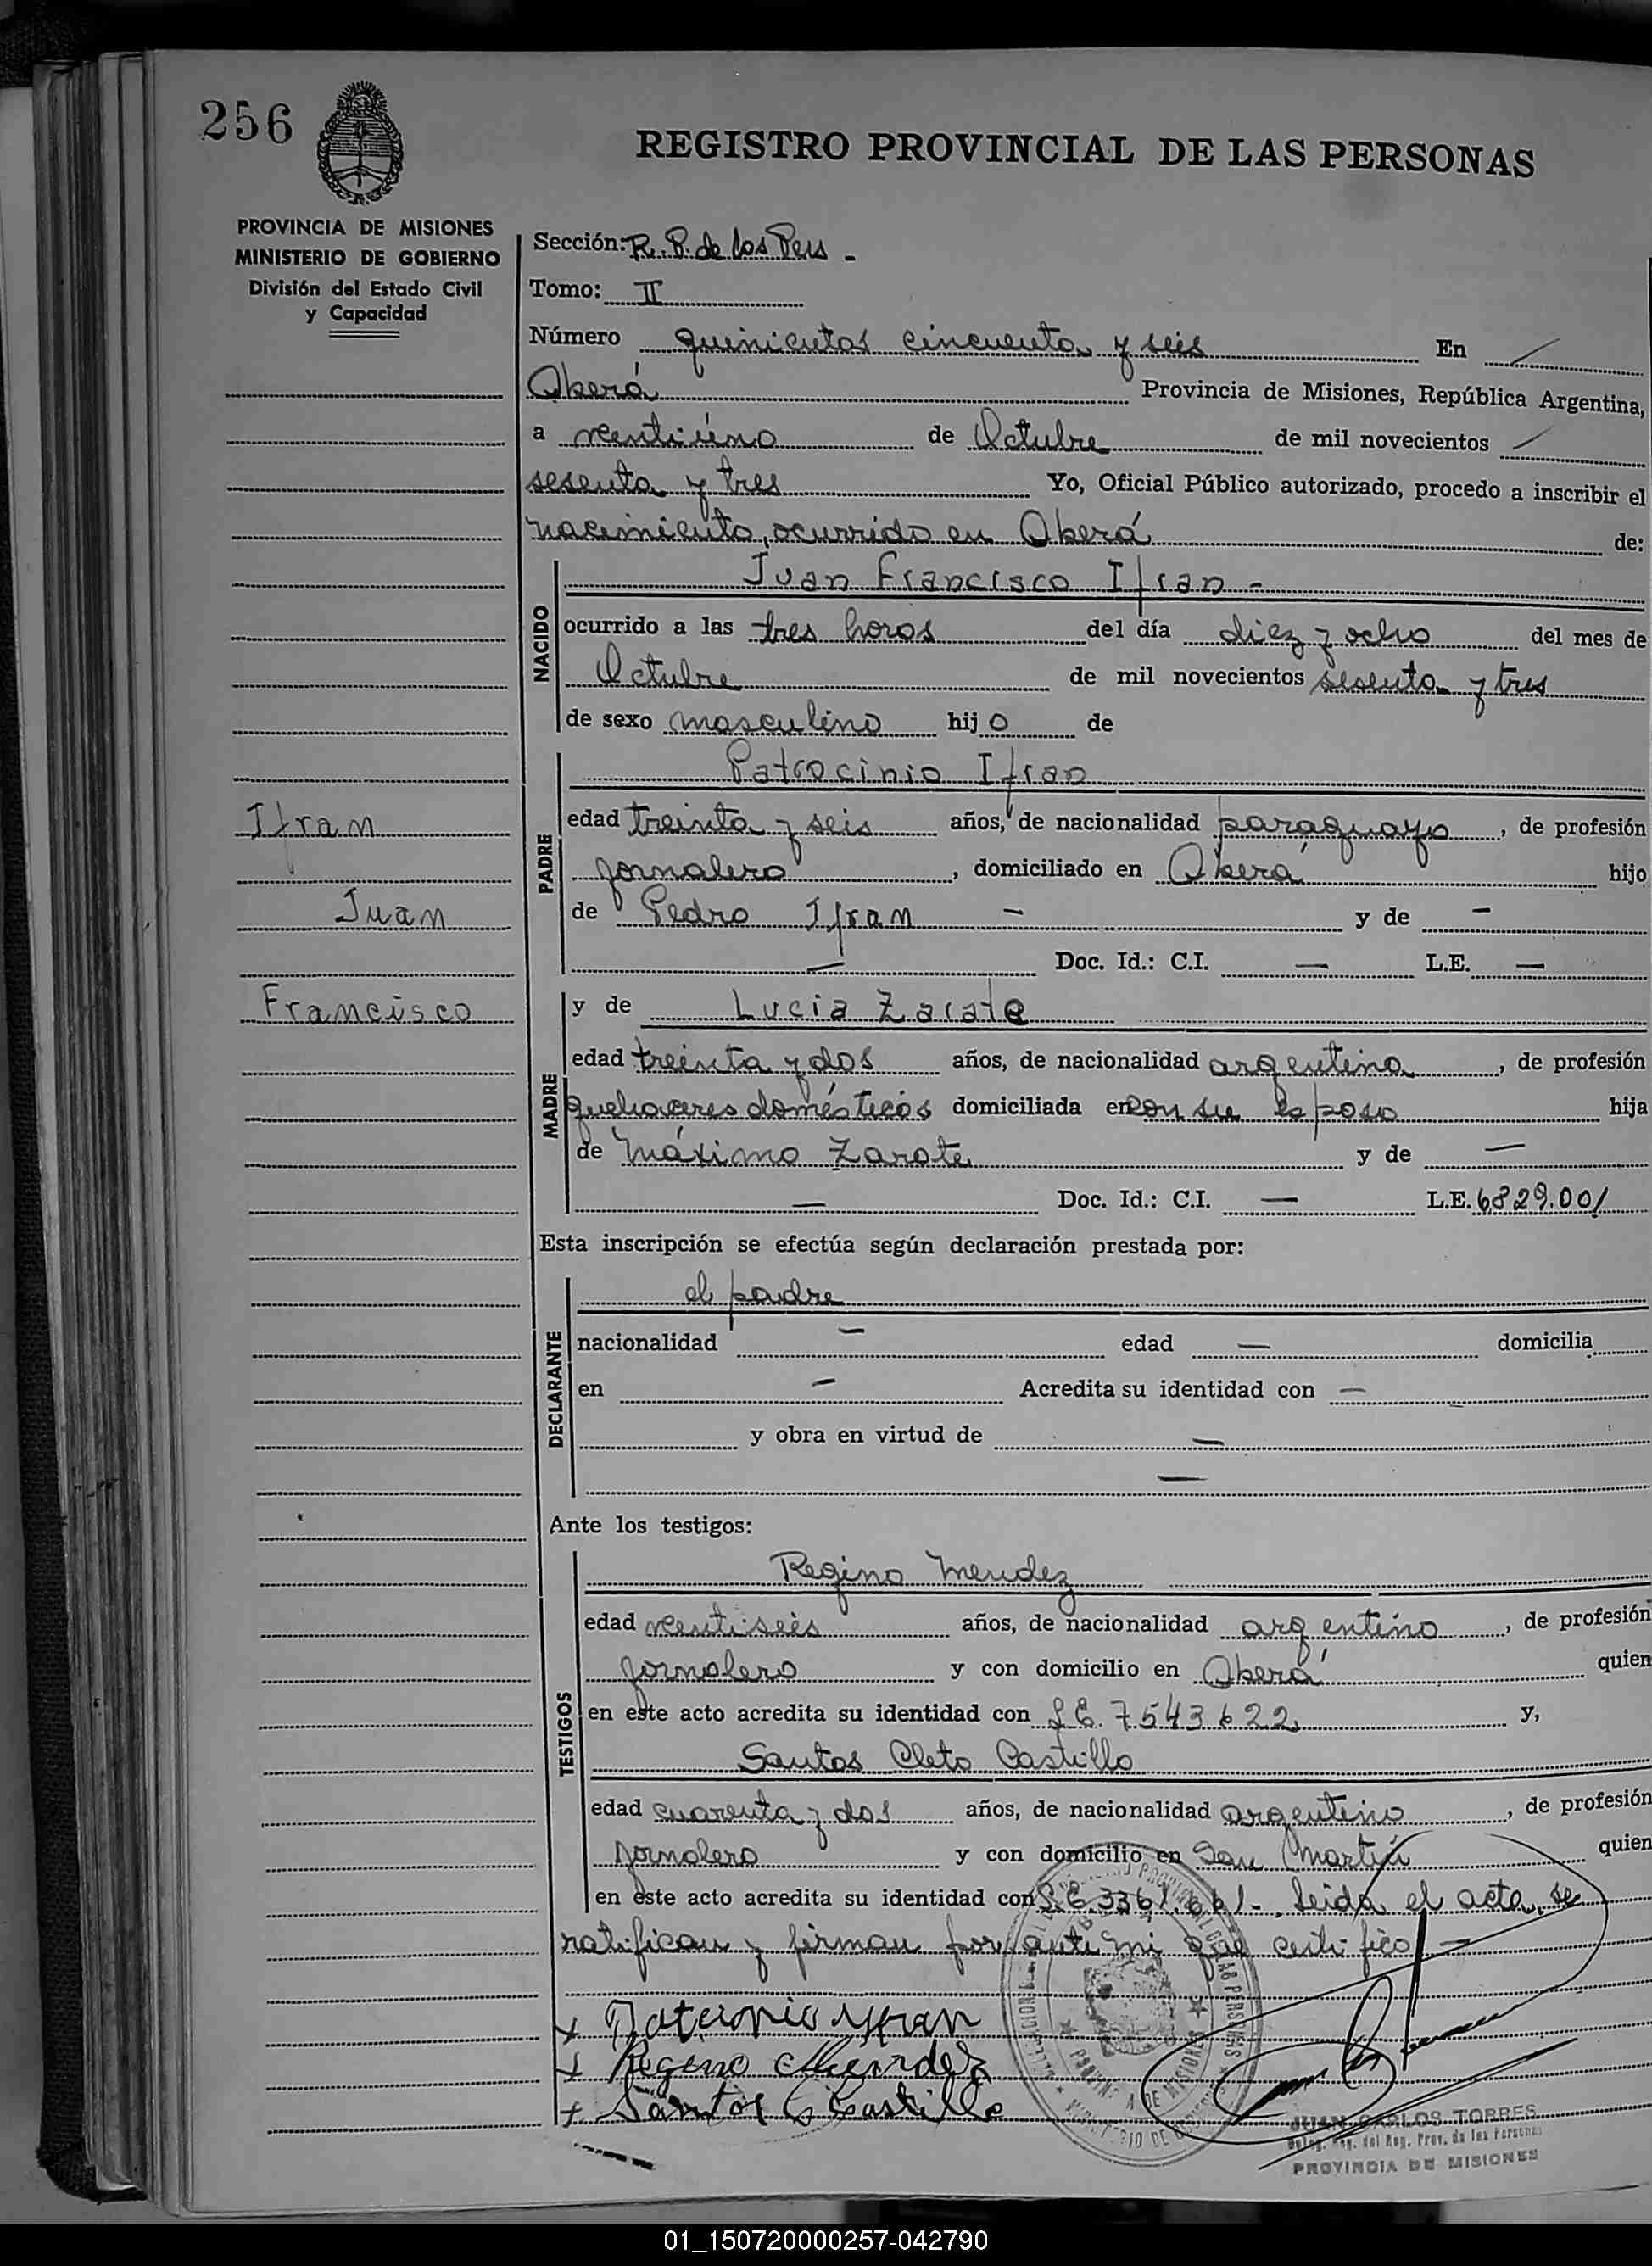 256
REGISTRO PROVINCIAL DE LAS PERSONAS
PROVINCIA DE MISIONES
MINISTERIO DE GOBIERNO
División del Estado Civil
y Capacidad
Sección: R. P. de los Pers -
Tomo: II
Número quinientos cincuenta y seis En /
Oberá Provincia de Misiones, República Argentina,
a veintiuno de Octubre de mil novecientos /
sesenta y tres Yo, Oficial Público autorizado, procedo a inscribir el
nacimiento, ocurrido en Oberá de:
NACIDO
Juan Francisco Ifran -
ocurrido a las tres horas del día diez y ocho del mes de
Octubre de mil novecientos sesenta y tres
de sexo masculino hijo de
PADRE
Patrocinio Ifran
Ifran
edad treinta y seis años, de nacionalidad paraguayo, de profesión
jornalero, domiciliado en Oberá hijo
Juan
de Pedro Ifran - y de -
- Doc. Id.: C.I. - L.E. -
Francisco
MADRE
y de Lucia Zarate
edad treinta y dos años, de nacionalidad argentina, de profesión
quehaceres domésticos domiciliada en con su esposo hija
de Máximo Zarate y de -
- Doc. Id.: C.I. - L.E. 6829.001
Esta inscripción se efectúa según declaración prestada por:
DECLARANTE
el padre
nacionalidad - edad - domicilia
en - Acredita su identidad con -
y obra en virtud de -
-
Ante los testigos:
TESTIGOS
Regino Mendez
edad veintiseis años, de nacionalidad argentino, de profesión
jornalero y con domicilio en Oberá quien
en este acto acredita su identidad con L.E. 7543622 y,
Santos Cleto Castillo
edad cuarenta y dos años, de nacionalidad argentino, de profesión
jornalero y con domicilio en San Martín quien
en este acto acredita su identidad con L.E. 3361.661-. Leida el acta, se
ratifican y firman por ante mi que certifico -
+ Patrocinio Yfran
+ Regino Mendez
+ Santos C Castillo
JUAN CARLOS TORRES
Deleg. Reg. del Reg. Prov. de las Personas
PROVINCIA DE MISIONES
01_150720000257-042790